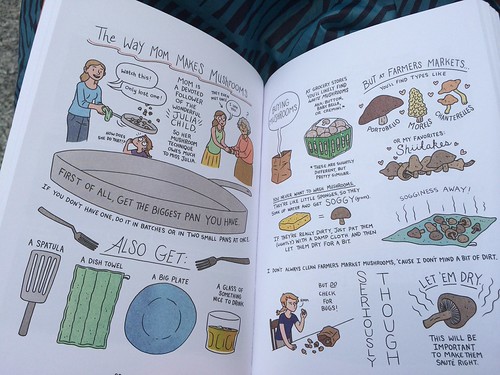 The Way Mom Makes Mushrooms
Watch this!
Only lost one!
HOW DOES
SHE DO THAT?!
MOM IS
A DEVOTED
FOLLOWER
OF THE
WONDERFUL
JULIA
CHILD
SO HER
MUSHROOM
TECHNIQUE
OWES MUCH
TO MISS JULIA.
THEY EVEN
MET ONCE!
FIRST OF ALL, GET THE BIGGEST PAN YOU HAVE.
IF YOU DON'T HAVE ONE, DO IT IN BATCHES OR IN TWO SMALL PANS AT ONCE.
ALSO GET:
A SPATULA
A DISH TOWEL
A BIG PLATE
A GLASS OF
SOMETHING
NICE TO DRINK.
BUYING
MUSHROOMS
AT GROCERY STORES
YOU'LL LIKELY FIND
WHITE MUSHROOMS
AKA: BUTTON,
BABY BELLA,
OR CREMINI.*
* THESE ARE SLIGHTLY
DIFFERENT BUT
PRETTY SIMILAR.
BUT AT FARMERS MARKETS...
YOU'LL FIND TYPES LIKE
PORTOBELLO
MORELS
CHANTERELLES
OR MY FAVORITES:
Shiitakes
YOU NEVER WANT TO WASH MUSHROOMS.
THEY'RE LIKE LITTLE SPONGES, SO THEY
SOAK UP WATER AND GET SOGGY (gross)
=
IF THEY'RE REALLY DIRTY, JUST PAT THEM
(LIGHTLY) WITH A DAMP CLOTH AND THEN
LET THEM DRY FOR A BIT.
SOGGINESS AWAY!
I DON'T ALWAYS CLEAN FARMERS MARKET MUSHROOMS, 'CAUSE I DON'T MIND A BIT OF DIRT.
BUT DO
CHECK
FOR
BUGS!
SERIOUSLY
THOUGH
LET 'EM DRY.
THIS WILL BE
IMPORTANT
TO MAKE THEM
SAUTÉ RIGHT.